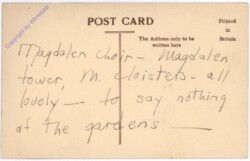 POST CARD
The Address only to be
written here
Printed
in
Britain
Magdalen choir - Magdalen
tower, M. cloisters - all
lovely - to say nothing
of the gardens -